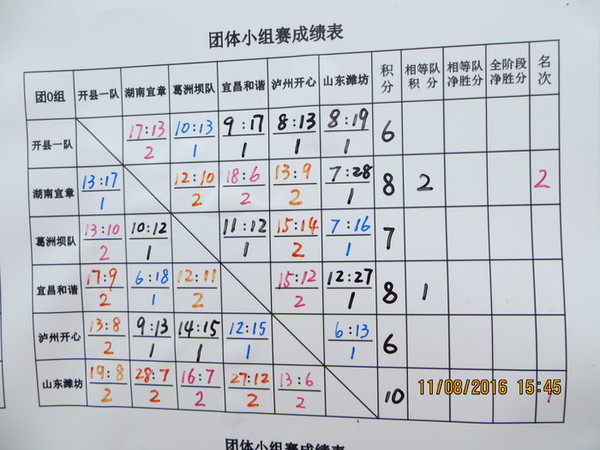 团体小组赛成绩表
团O组 开县一队 湖南宜章 葛洲坝队 宜昌和谐 泸州开心 山东潍坊 积分 相等队积分 相等队净胜分 全阶段净胜分 名次
开县一队 17:13 2 10:13 1 9:17 1 8:13 1 8:19 1 6
湖南宜章 13:17 1 12:10 2 18:6 2 13:9 2 7:28 1 8 2 2
葛洲坝队 13:10 2 10:12 1 11:12 1 15:14 2 7:16 1 7
宜昌和谐 17:9 2 6:18 1 12:11 2 15:12 2 12:27 1 8 1
泸州开心 13:8 2 9:13 1 14:15 1 12:15 1 6:13 1 6
山东潍坊 19:8 2 28:7 2 16:7 2 27:12 2 13:6 2 10 1
11/08/2016 15:45
团体小组赛成绩表